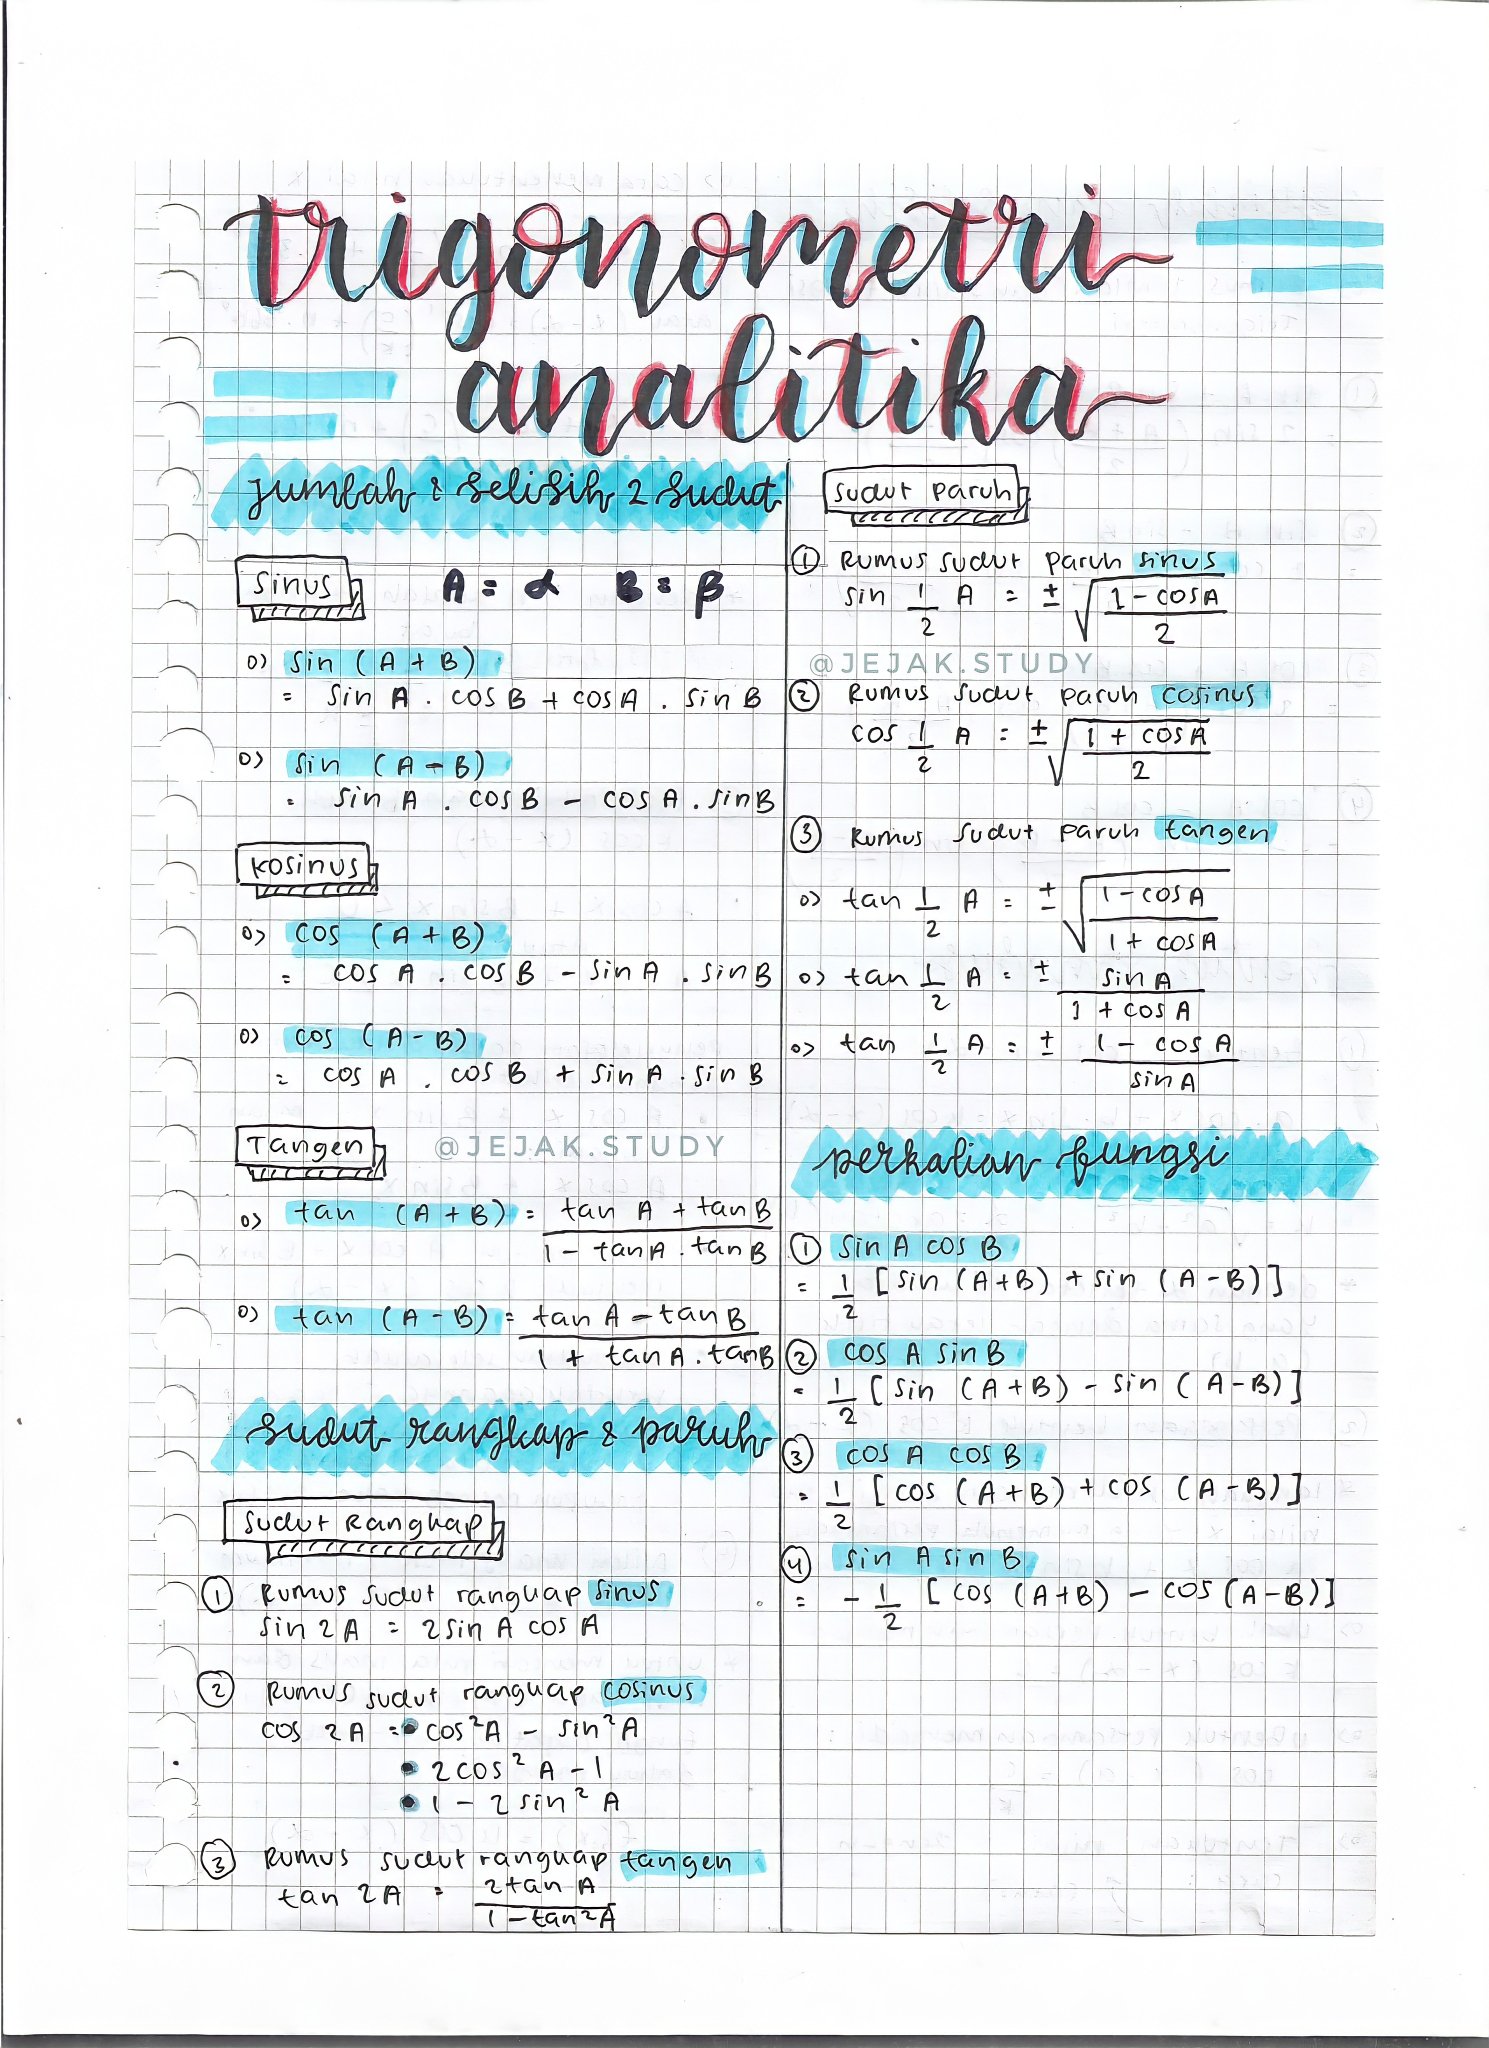 trigonometri
analitika
jumlah & selisih 2 sudut
sinus
A = α B = β
o> sin (A + B)
= sin A . cos B + cos A . sin B
o> sin (A - B)
= sin A . cos B - cos A . sin B
kosinus
o> cos (A + B)
= cos A . cos B - sin A . sin B
o> cos (A - B)
= cos A . cos B + sin A . sin B
Tangen
@JEJAK.STUDY
o> tan (A + B) = tan A + tan B
1 - tan A . tan B
o> tan (A - B) = tan A - tan B
1 + tan A . tan B
sudut rangkap & paruh
Sudut Rangkap
① Rumus sudut rangkap sinus
sin 2A = 2 sin A cos A
② Rumus sudut rangkap cosinus
cos 2A = • cos²A - sin²A
• 2 cos² A - 1
• 1 - 2 sin² A
③ Rumus sudut rangkap tangen
tan 2A = 2 tan A
1 - tan²A
sudut paruh
① Rumus sudut paruh sinus
sin 1/2 A = ± √ 1 - cos A
2
@JEJAK.STUDY
② Rumus sudut paruh cosinus
cos 1/2 A = ± √ 1 + cos A
2
③ Rumus sudut paruh tangen
o> tan 1/2 A = ± √ 1 - cos A
1 + cos A
o> tan 1/2 A = ± sin A
1 + cos A
o> tan 1/2 A = ± 1 - cos A
sin A
perkalian fungsi
① sin A cos B
= 1/2 [sin (A+B) + sin (A-B)]
② cos A sin B
= 1/2 [sin (A+B) - sin (A-B)]
③ cos A cos B
= 1/2 [cos (A+B) + cos (A-B)]
④ sin A sin B
= - 1/2 [cos (A+B) - cos (A-B)]